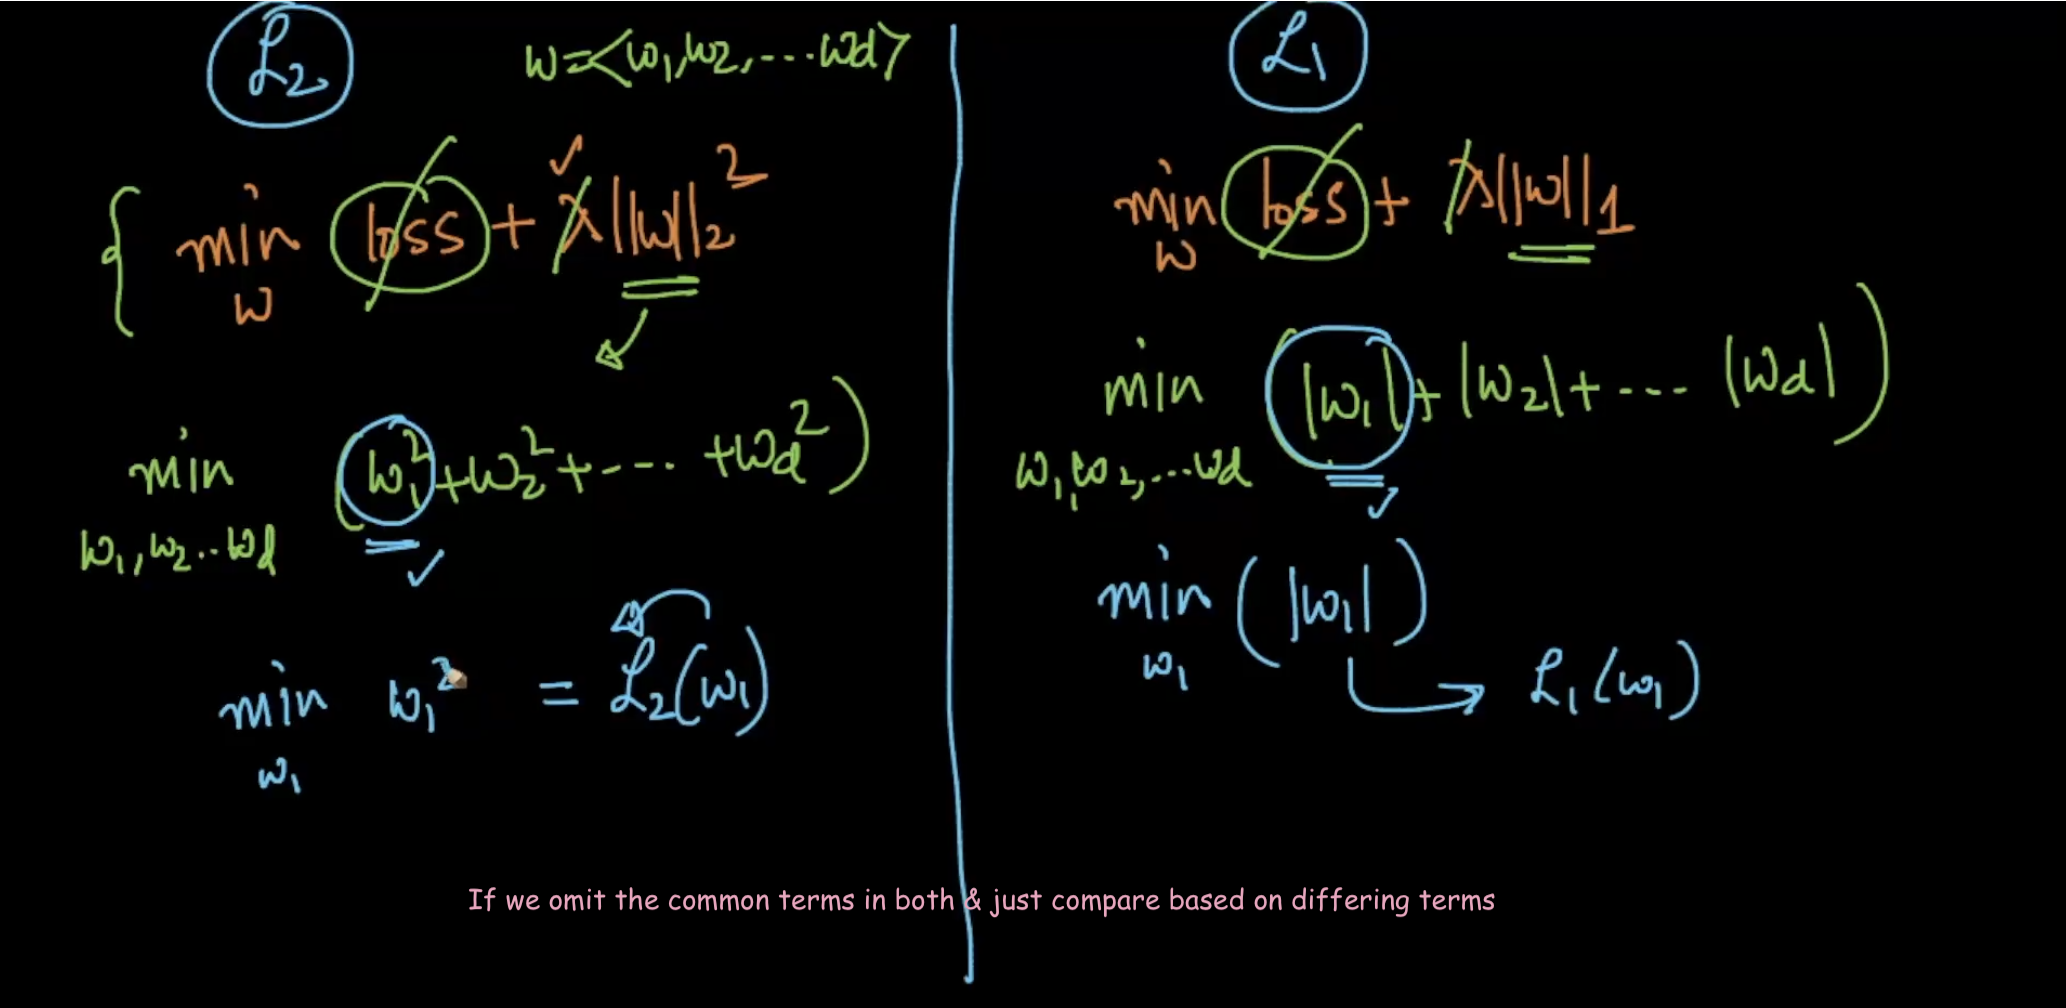 ℒ₂
w=<w₁,w₂,...wd>
min loss + λ||w||₂²
w
min (w₁²+w₂²+---- +wd²)
w₁,w₂..wd
min w₁² = ℒ₂(w₁)
w₁
ℒ₁
min loss + λ||w||₁
w
min (|w₁|+|w₂|+--- |wd|)
w₁,w₂,...wd
min (|w₁|)
w₁
ℒ₁(w₁)
If we omit the common terms in both & just compare based on differing terms